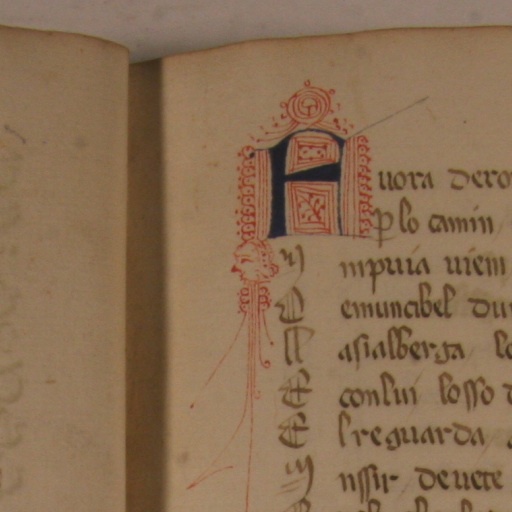 A uora dero
ꝑ lo camin
M mpuia uiem
D emuncibel du
M asialberga lo
E conlui losso
E l reguarda
M issir deuete